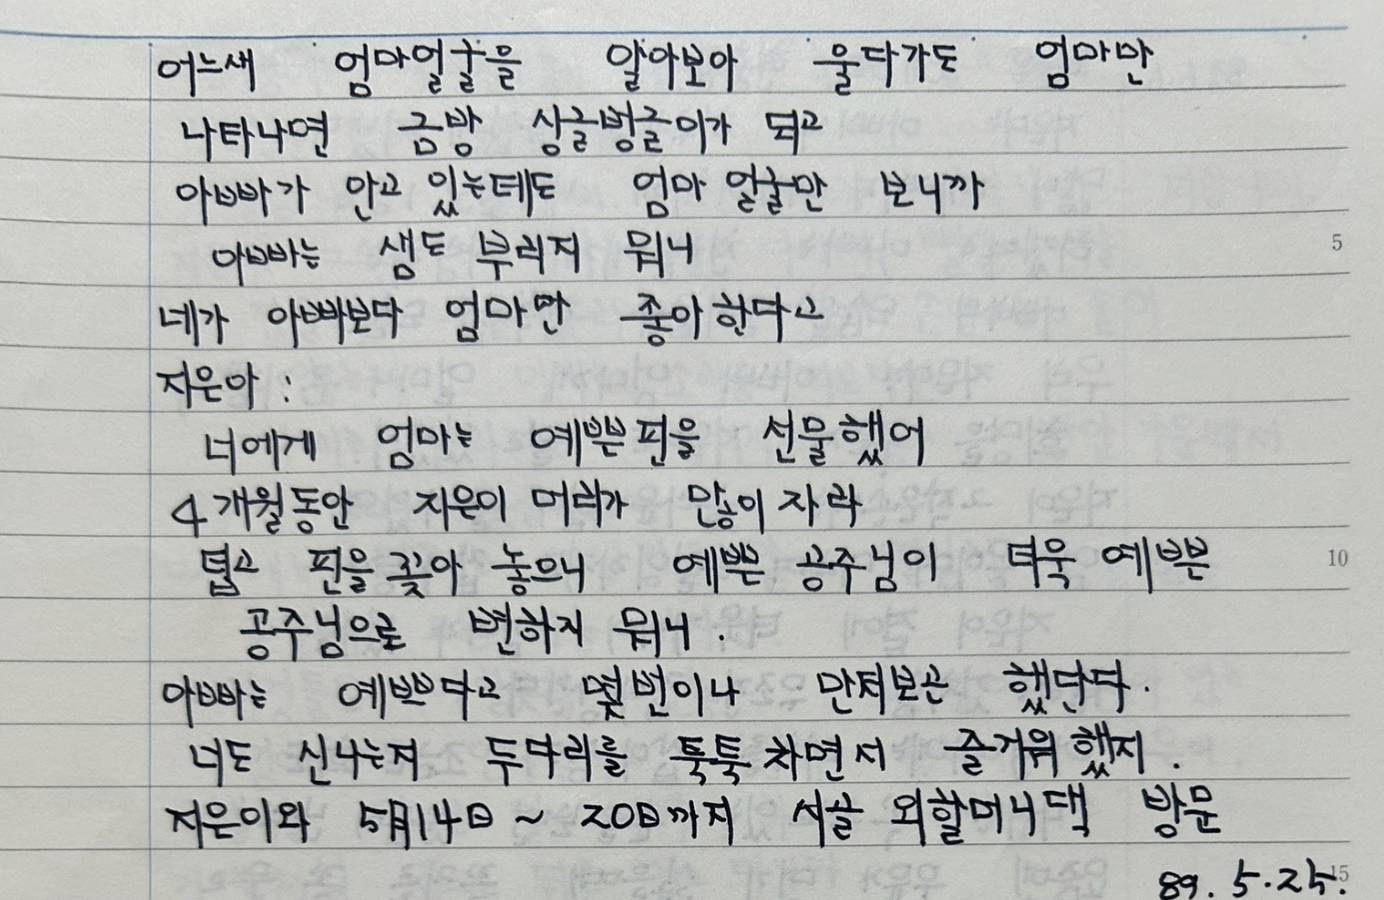 어느새 엄마얼굴을 알아보아 울다가도 엄마만
나타나면 금방 싱글벙글이가 되고
아빠가 안고 있는데도 엄마 얼굴만 보니까
5
아빠는 샘도 부리지 뭐니
네가 아빠보다 엄마만 좋아한다고
지은아:
너에게 엄마는 예쁜핀을 선물했어
4개월동안 지은이 머리가 많이 자라
10
덥고 핀을 꽂아 놓으니 예쁜 공주님이 더욱 예쁜
공주님으로 변하지 뭐니.
아빠는 예쁘다고 몇번이나 만져보곤 했단다.
너도 신나는지 두다리를 툭툭 차면서 즐거워했지.
지은이와 5月14日 ~ 20日까지 시골 외할머니댁 방문
15
89. 5. 25.